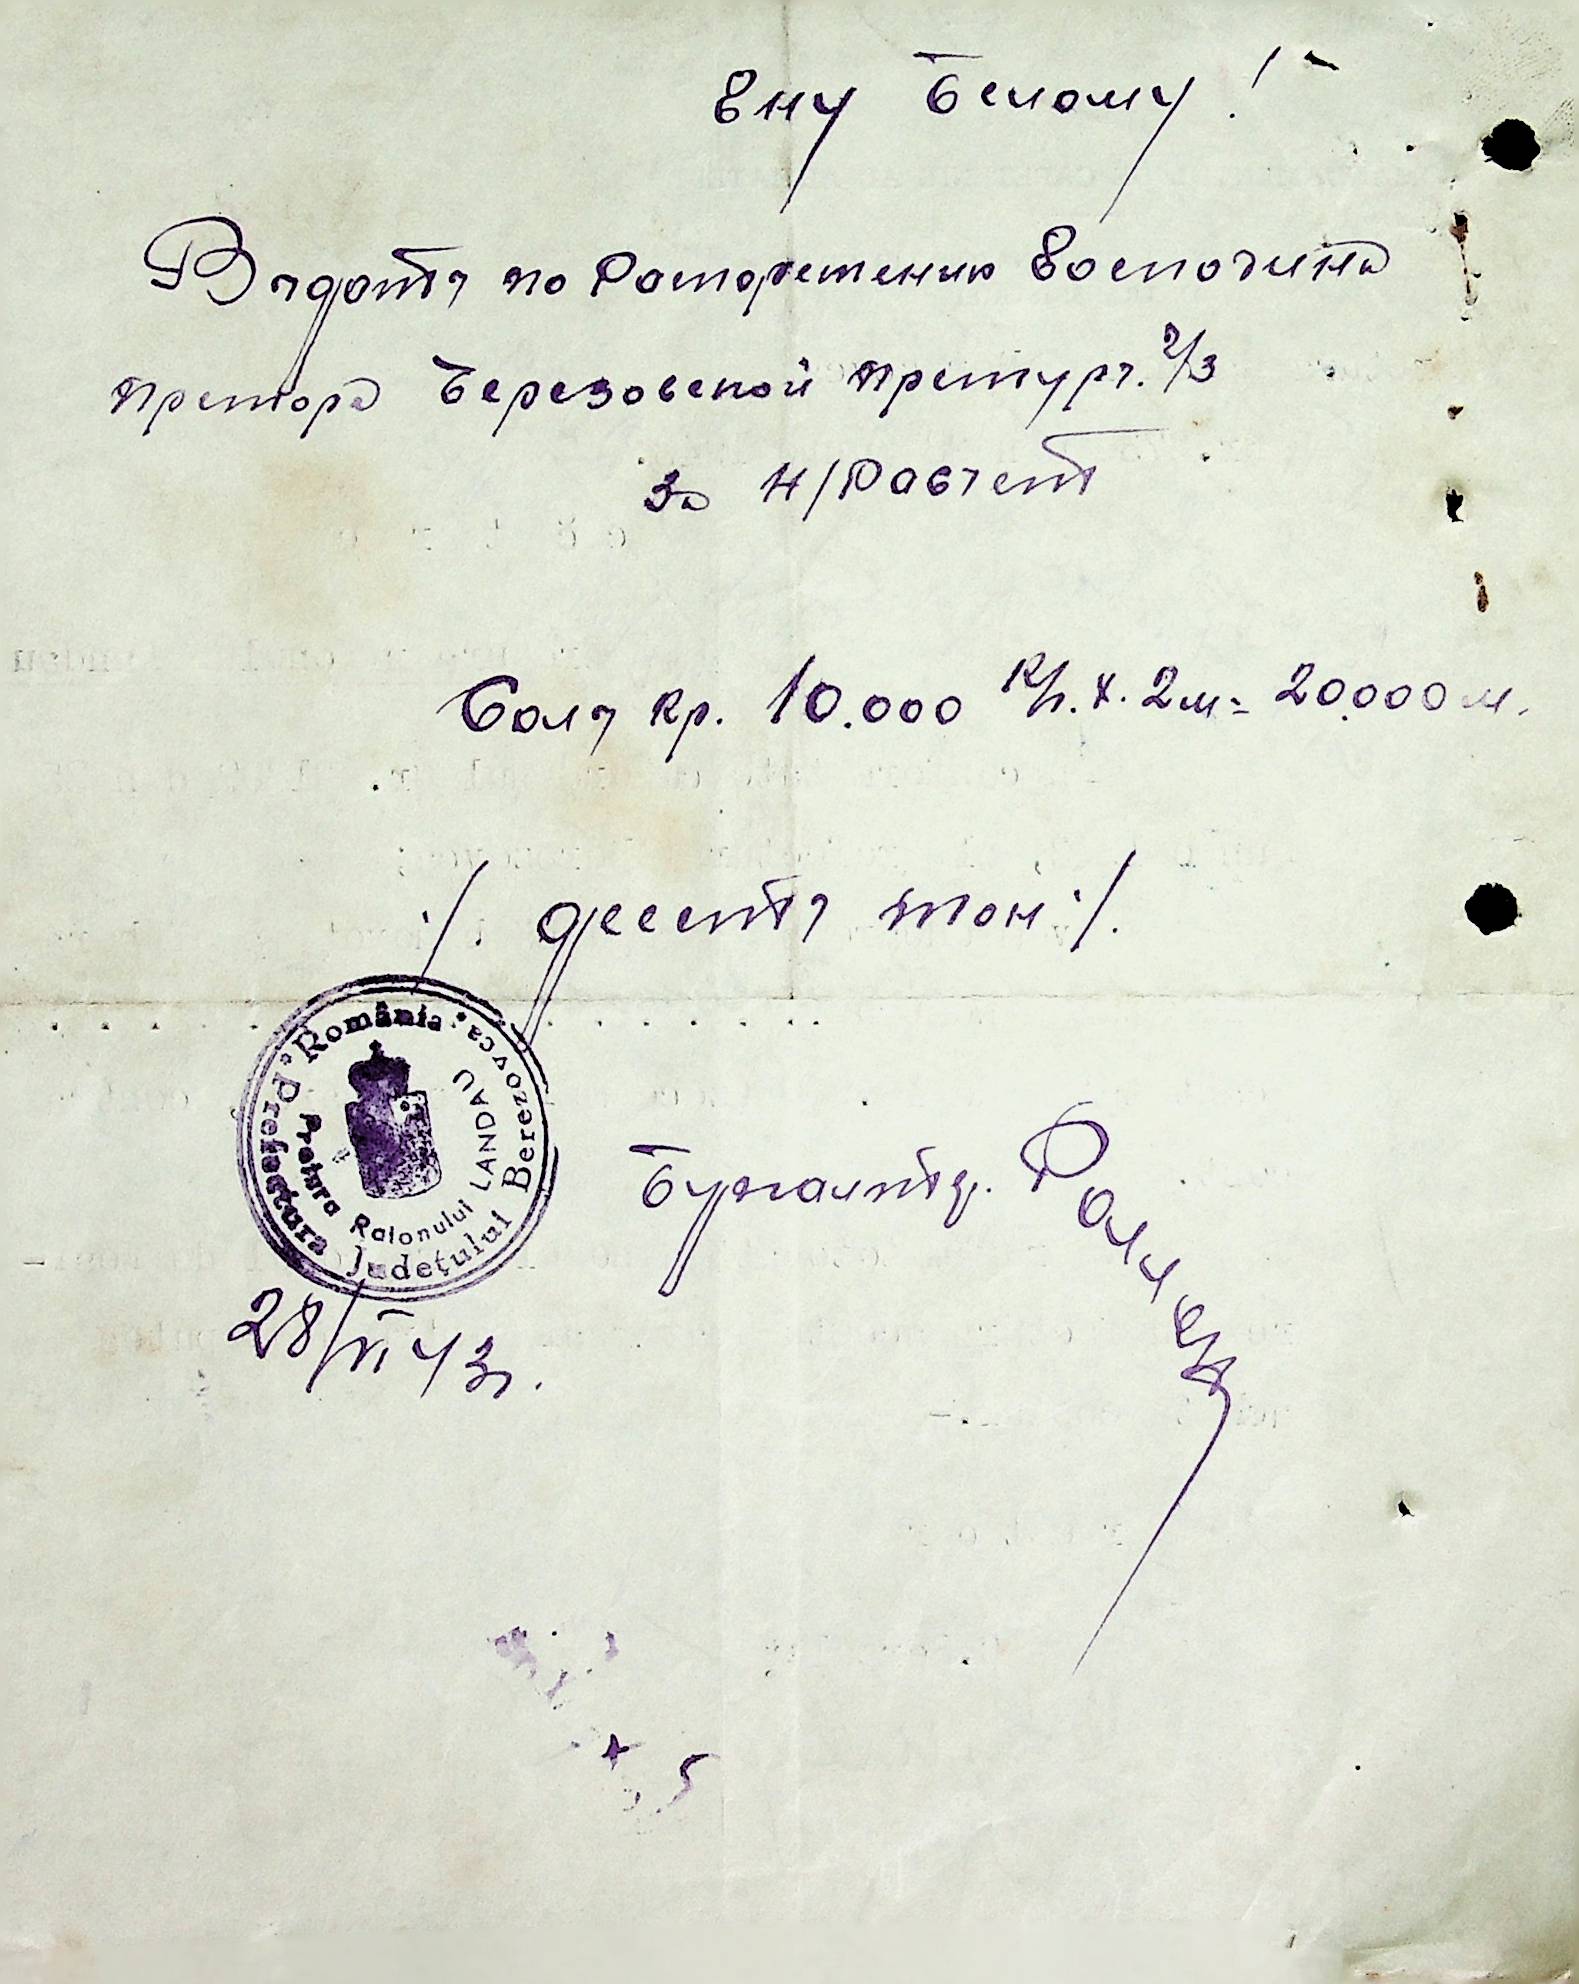 Гну Белому!
Выдать по Распорежению Господина
Претора Березовской Претуры. Ч/З
За Н/Расчет
Соль кр. 10.000 К/г. х. 2 м = 20.000 м.
·/ десеть тон ·/.
România
Prefectura Județului Berezovca
Pretura Raionului LANDAU
Бухгалтер.
28/VI 43 г.